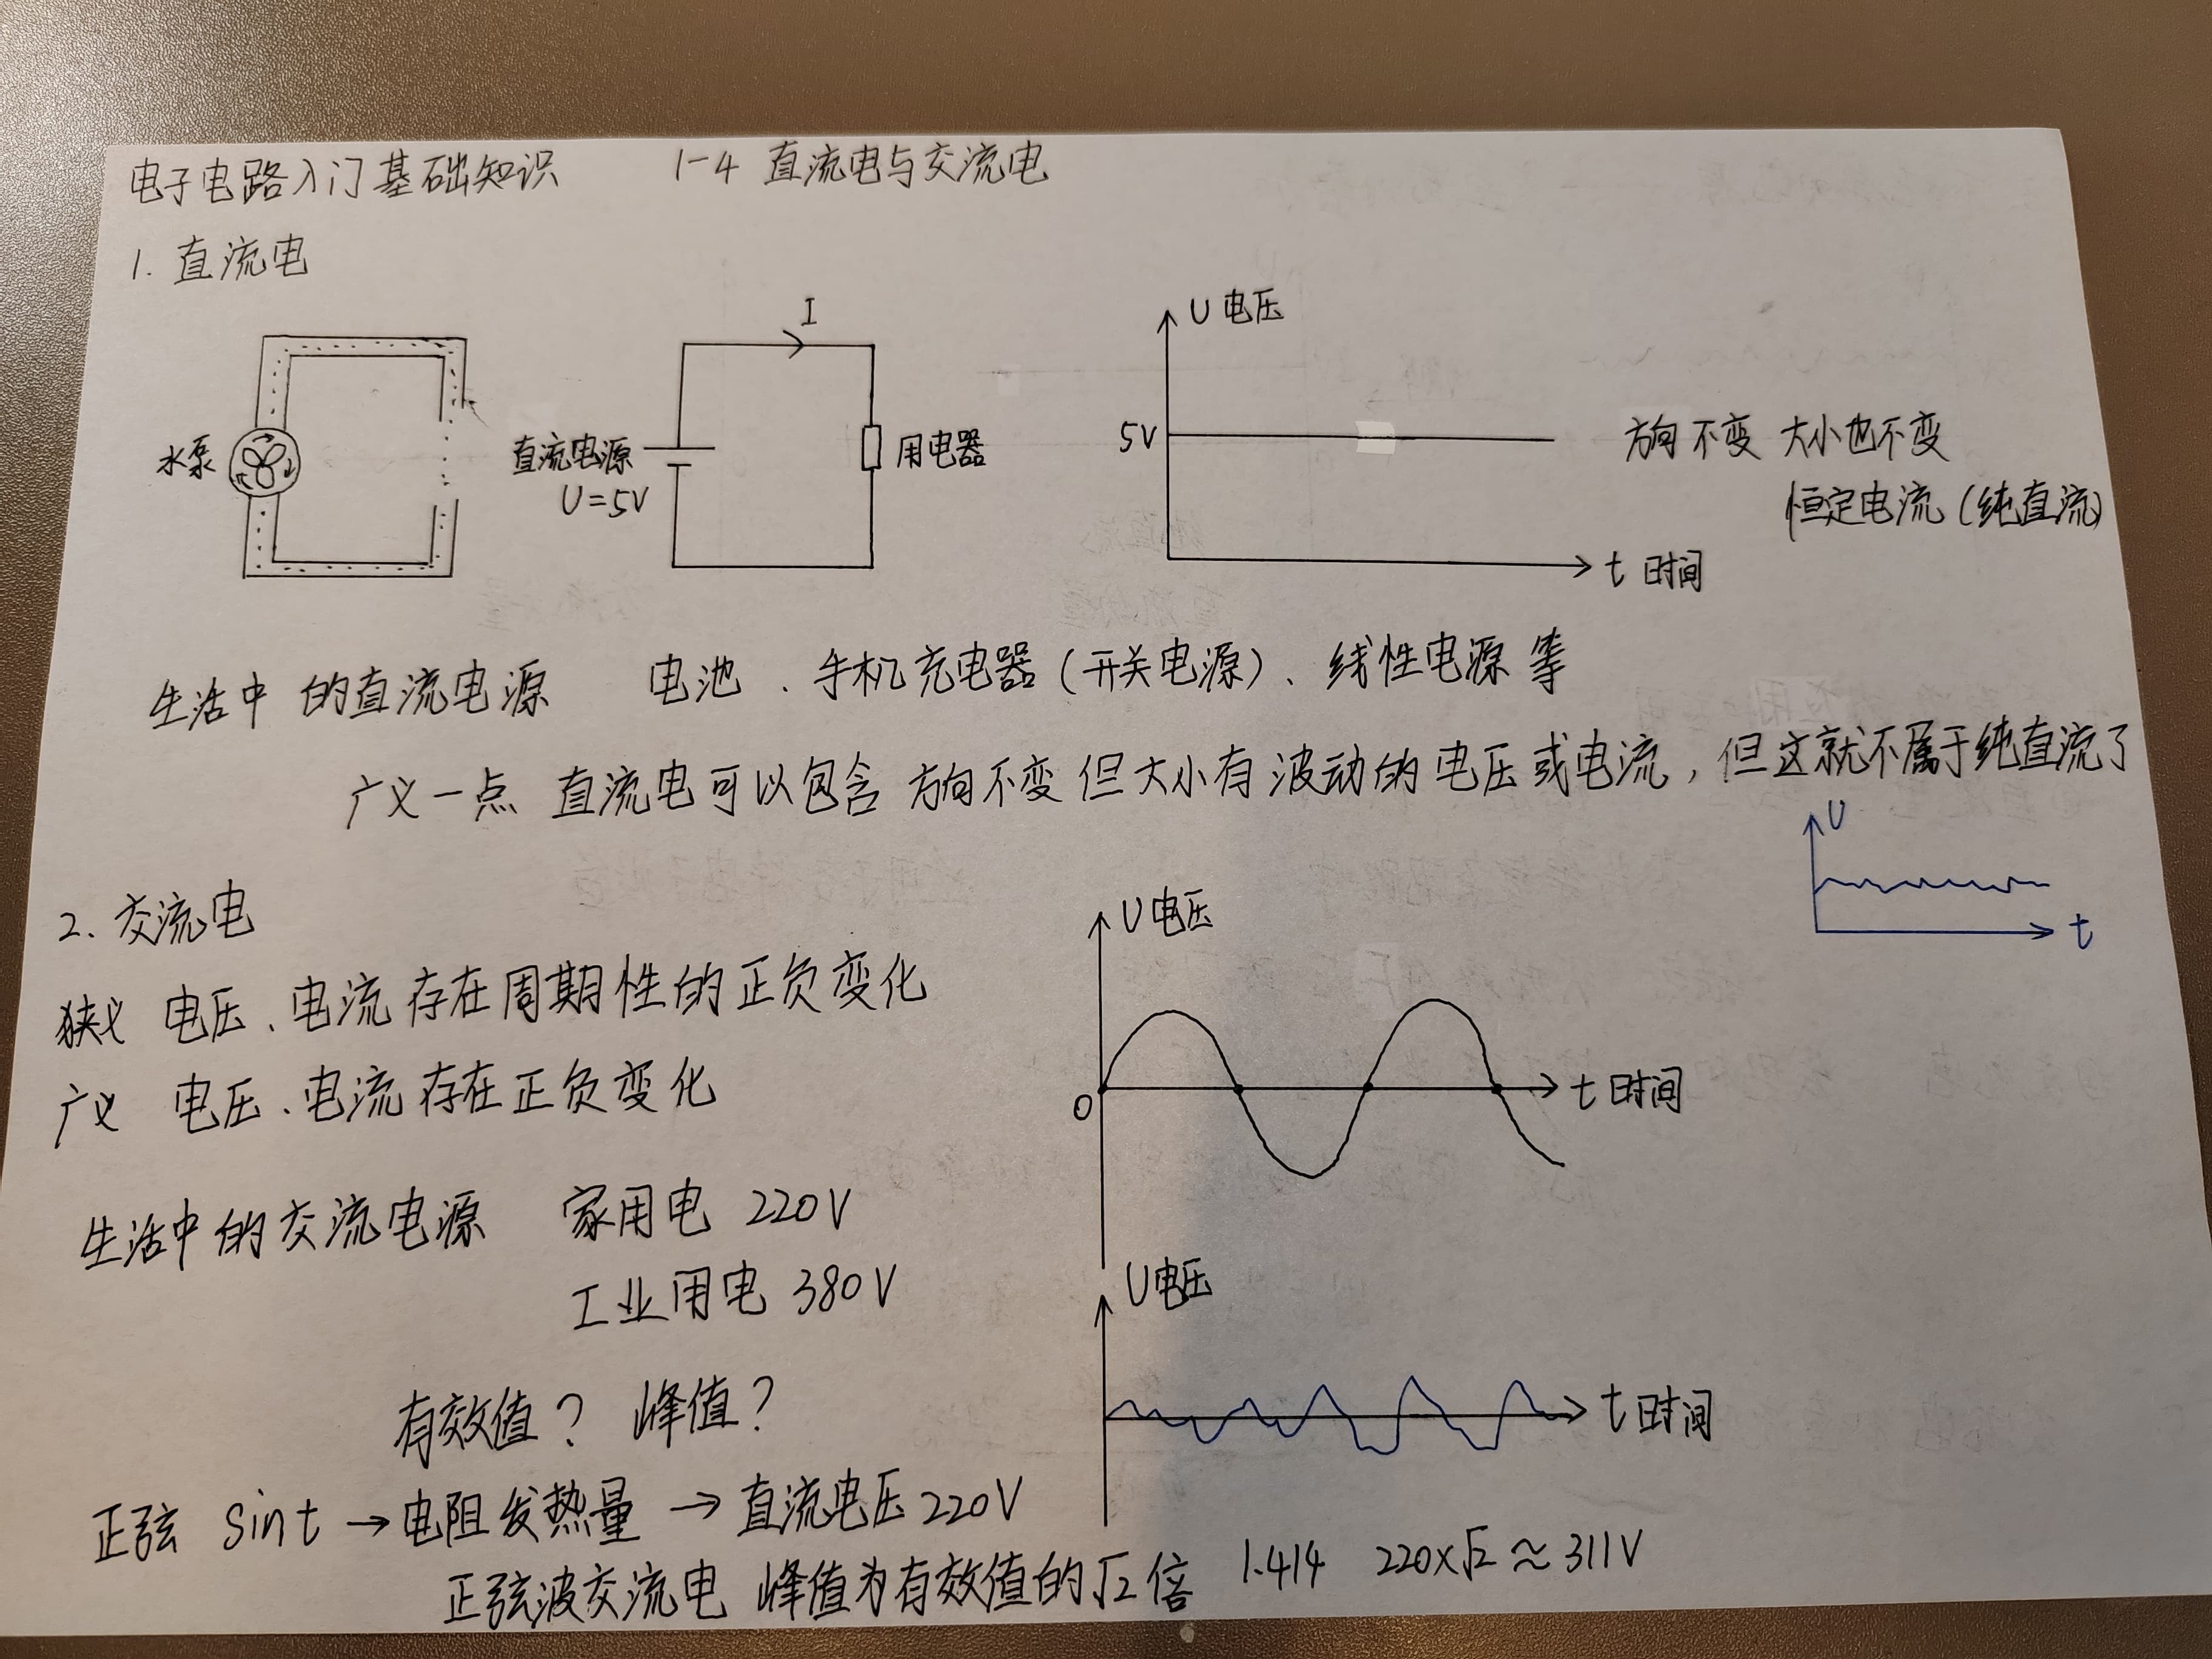 电子电路入门基础知识 1-4 直流电与交流电
1. 直流电
水泵
I
直流电源
U=5V
用电器
U 电压
5V
t 时间
方向不变 大小也不变
恒定电流 (纯直流)
生活中的直流电源 电池、手机充电器(开关电源)、线性电源等
广义一点 直流电可以包含方向不变但大小有波动的电压或电流,但这就不属于纯直流了
U
t
2. 交流电
狭义 电压、电流存在周期性的正负变化
广义 电压、电流存在正负变化
U 电压
0
t 时间
生活中的交流电源 家用电 220V
工业用电 380V
U 电压
t 时间
有效值? 峰值?
正弦 Sint → 电阻发热量 → 直流电压 220V
正弦波交流电 峰值为有效值的√2倍 1.414 220×√2≈311V